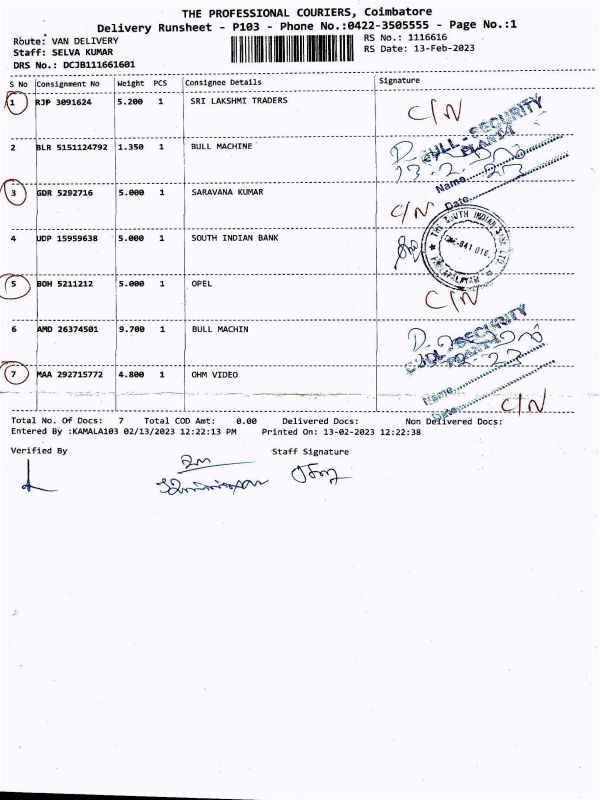 THE PROFESSIONAL COURIERS, Coimbatore
Delivery Runsheet - P103 - Phone No.:0422-3505555 - Page No.:1
Route: VAN DELIVERY
RS No.: 1116616
Staff: SELVA KUMAR
RS Date: 13-Feb-2023
DRS No.: DCJB111661601
S No Consignment No Weight PCS Consignee Details Signature
1 RJP 3091624 5.200 1 SRI LAKSHMI TRADERS C/N
2 BLR 5151124792 1.350 1 BULL MACHINE
BULL - SECURITY
Name
Date
3 GDR 5292716 5.000 1 SARAVANA KUMAR C/N
4 UDP 15959638 5.000 1 SOUTH INDIAN BANK
THE SOUTH INDIAN BANK LTD.
5 BOH 5211212 5.000 1 OPEL C/N
6 AMD 26374501 9.700 1 BULL MACHIN
BULL - SECURITY
Name
Date
7 MAA 292715772 4.800 1 OHM VIDEO C/N
Total No. Of Docs: 7 Total COD Amt: 0.00 Delivered Docs: Non Delivered Docs:
Entered By :KAMALA103 02/13/2023 12:22:13 PM Printed On: 13-02-2023 12:22:38
Verified By Staff Signature